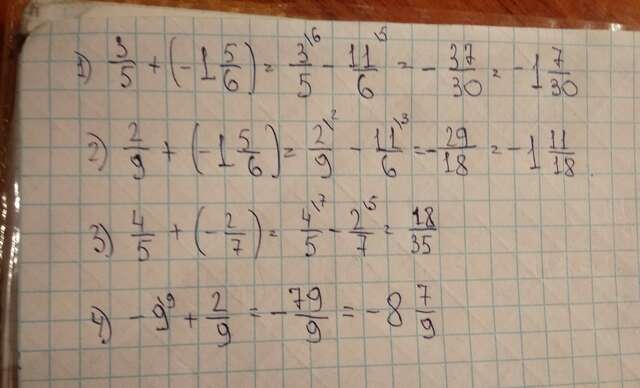 1) 3/5 + (-1 5/6) = 3\6/5 - 11\5/6 = - 37/30 = -1 7/30
2) 2/9 + (-1 5/6) = 2\2/9 - 11\3/6 = - 29/18 = -1 11/18
3) 4/5 + (- 2/7) = 4\7/5 - 2\5/7 = 18/35
4) - 9\9 + 2/9 = - 79/9 = -8 7/9